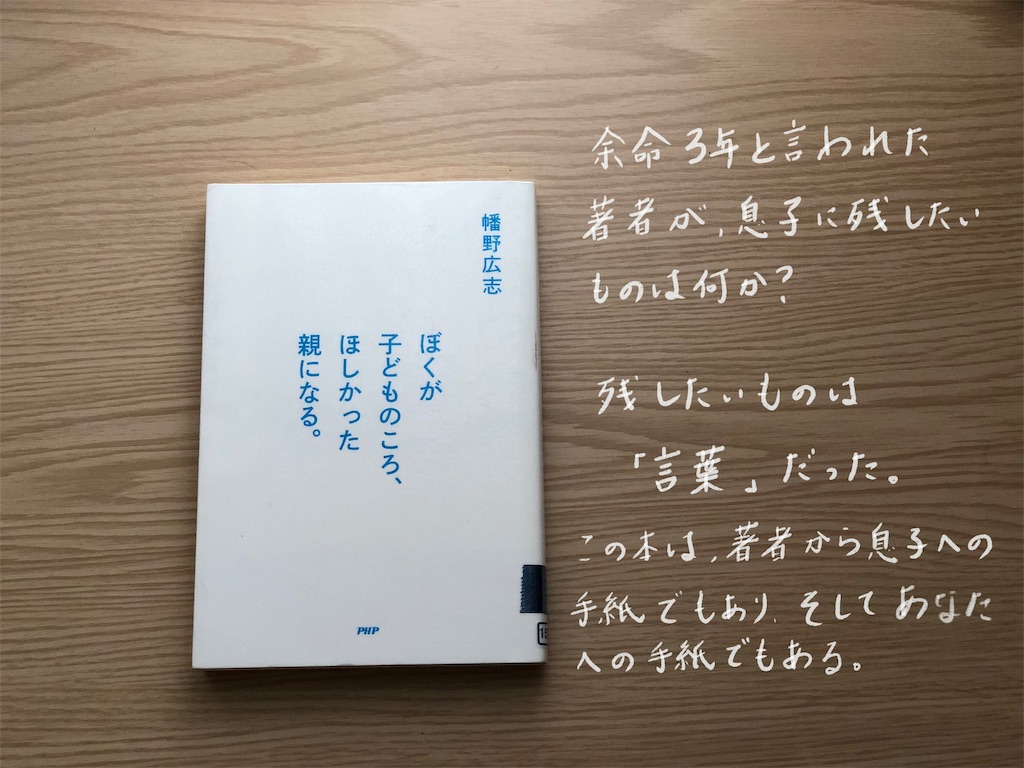 幡野広志
ぼくが
子どものころ、
ほしかった
親になる。
PHP
余命3年と言われた
著者が,息子に残したい
ものは何か?
残したいものは
「言葉」だった。
この本は,著者から息子への
手紙でもあり,そしてあなた
への手紙でもある。